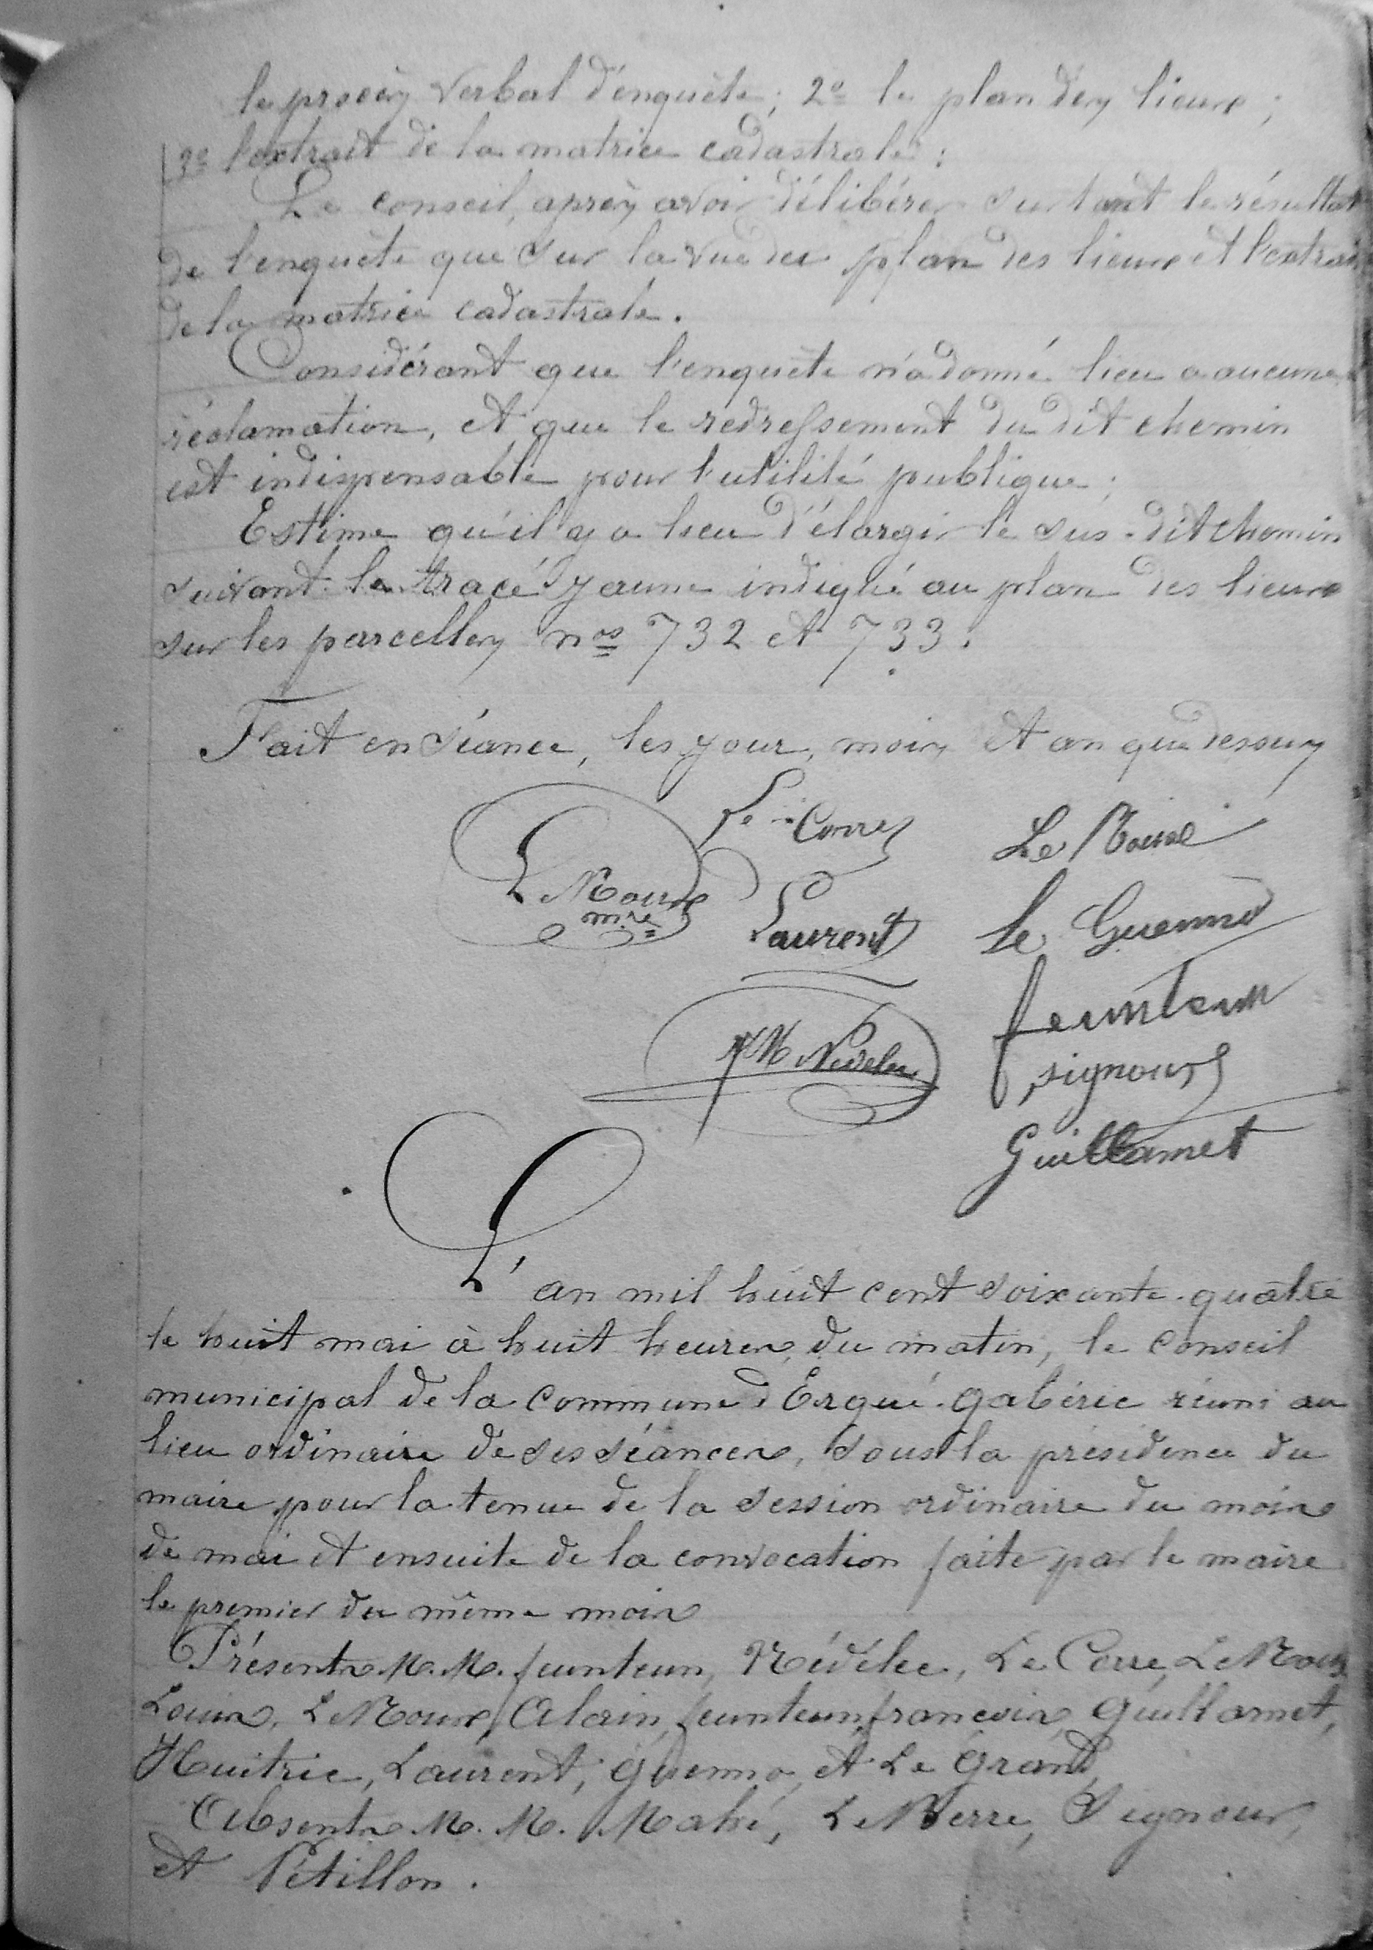 le procès verbal d'enquête; 2º le plan des lieux;
3º l'extrait de la matrice cadastrale:
Le conseil, après avoir délibérer sur tant le résultat
de l'enquête que sur la vue du plan des lieux et l'extrait
de la matrice cadastrale.
Considérant que l'enquête n'a donné lieu a aucune
réclamation, et que le redressement du dit chemin
est indispensable pour l'utilité publique;
Estime qu'il y a lieu d'élargir le sus-dit chemin
suivant le tracé jaune indiqué au plan des lieux
sur les parcelles nos 732 et 733.
Fait en séance, les jour, mois et an que dessus
Le Corre
L Noure
mre
Laurent
Le Guenno
feunteun
Nédélec
signour
Guillamet
L'an mil huit cent soixante-quatre
le huit mai à huit heures du matin, le conseil
municipal de la commune d'Ergué-Gabéric réuni au
lieu ordinaire de ses séances, sous la présidence du
maire pour la tenue de la session ordinaire du mois
de mai et ensuite de la convocation faite par le maire
le premier du même mois
Présents M.M. feunteun, Nédélec, Le Corre, Le Noure
Louis, Le Noure Alain, feunteun françois, Guillamet,
Huitric, Laurent, Guenno, et Le Grand,
Absents M.M. Mahé, Le Berre, Signour,
et Pétillon.